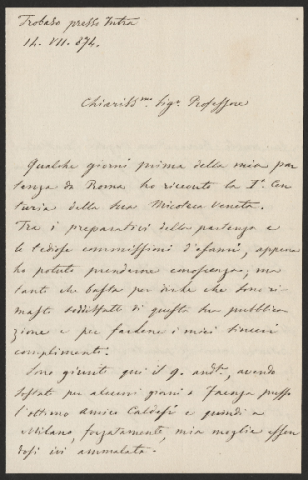 Trobaso presso Intra
14. VII. 874.
Chiariss.mo Sigr. Professore
Qualche giorni prima della mia par
tenza da Roma ho ricevuto la I.a Cen
turia della sua Micoteca Veneta.
Tra i preparativi della partenza e
le tediose commissioni d'afanni, appena
ho potuto prenderne conoscenza; ma
tanto che basta per dirle che sono ri
masto soddisfatto di questa sua pubblica
zione e per fartene i miei sinceri
complimenti.
Sono giunti qui il 9. andte., avendo
sostato per alcuni giorni a Faenza presso
l'ottimo Amico Caldesi e quindi a
Milano, forzatamente, mia moglie essen
dosi ivi ammalata.